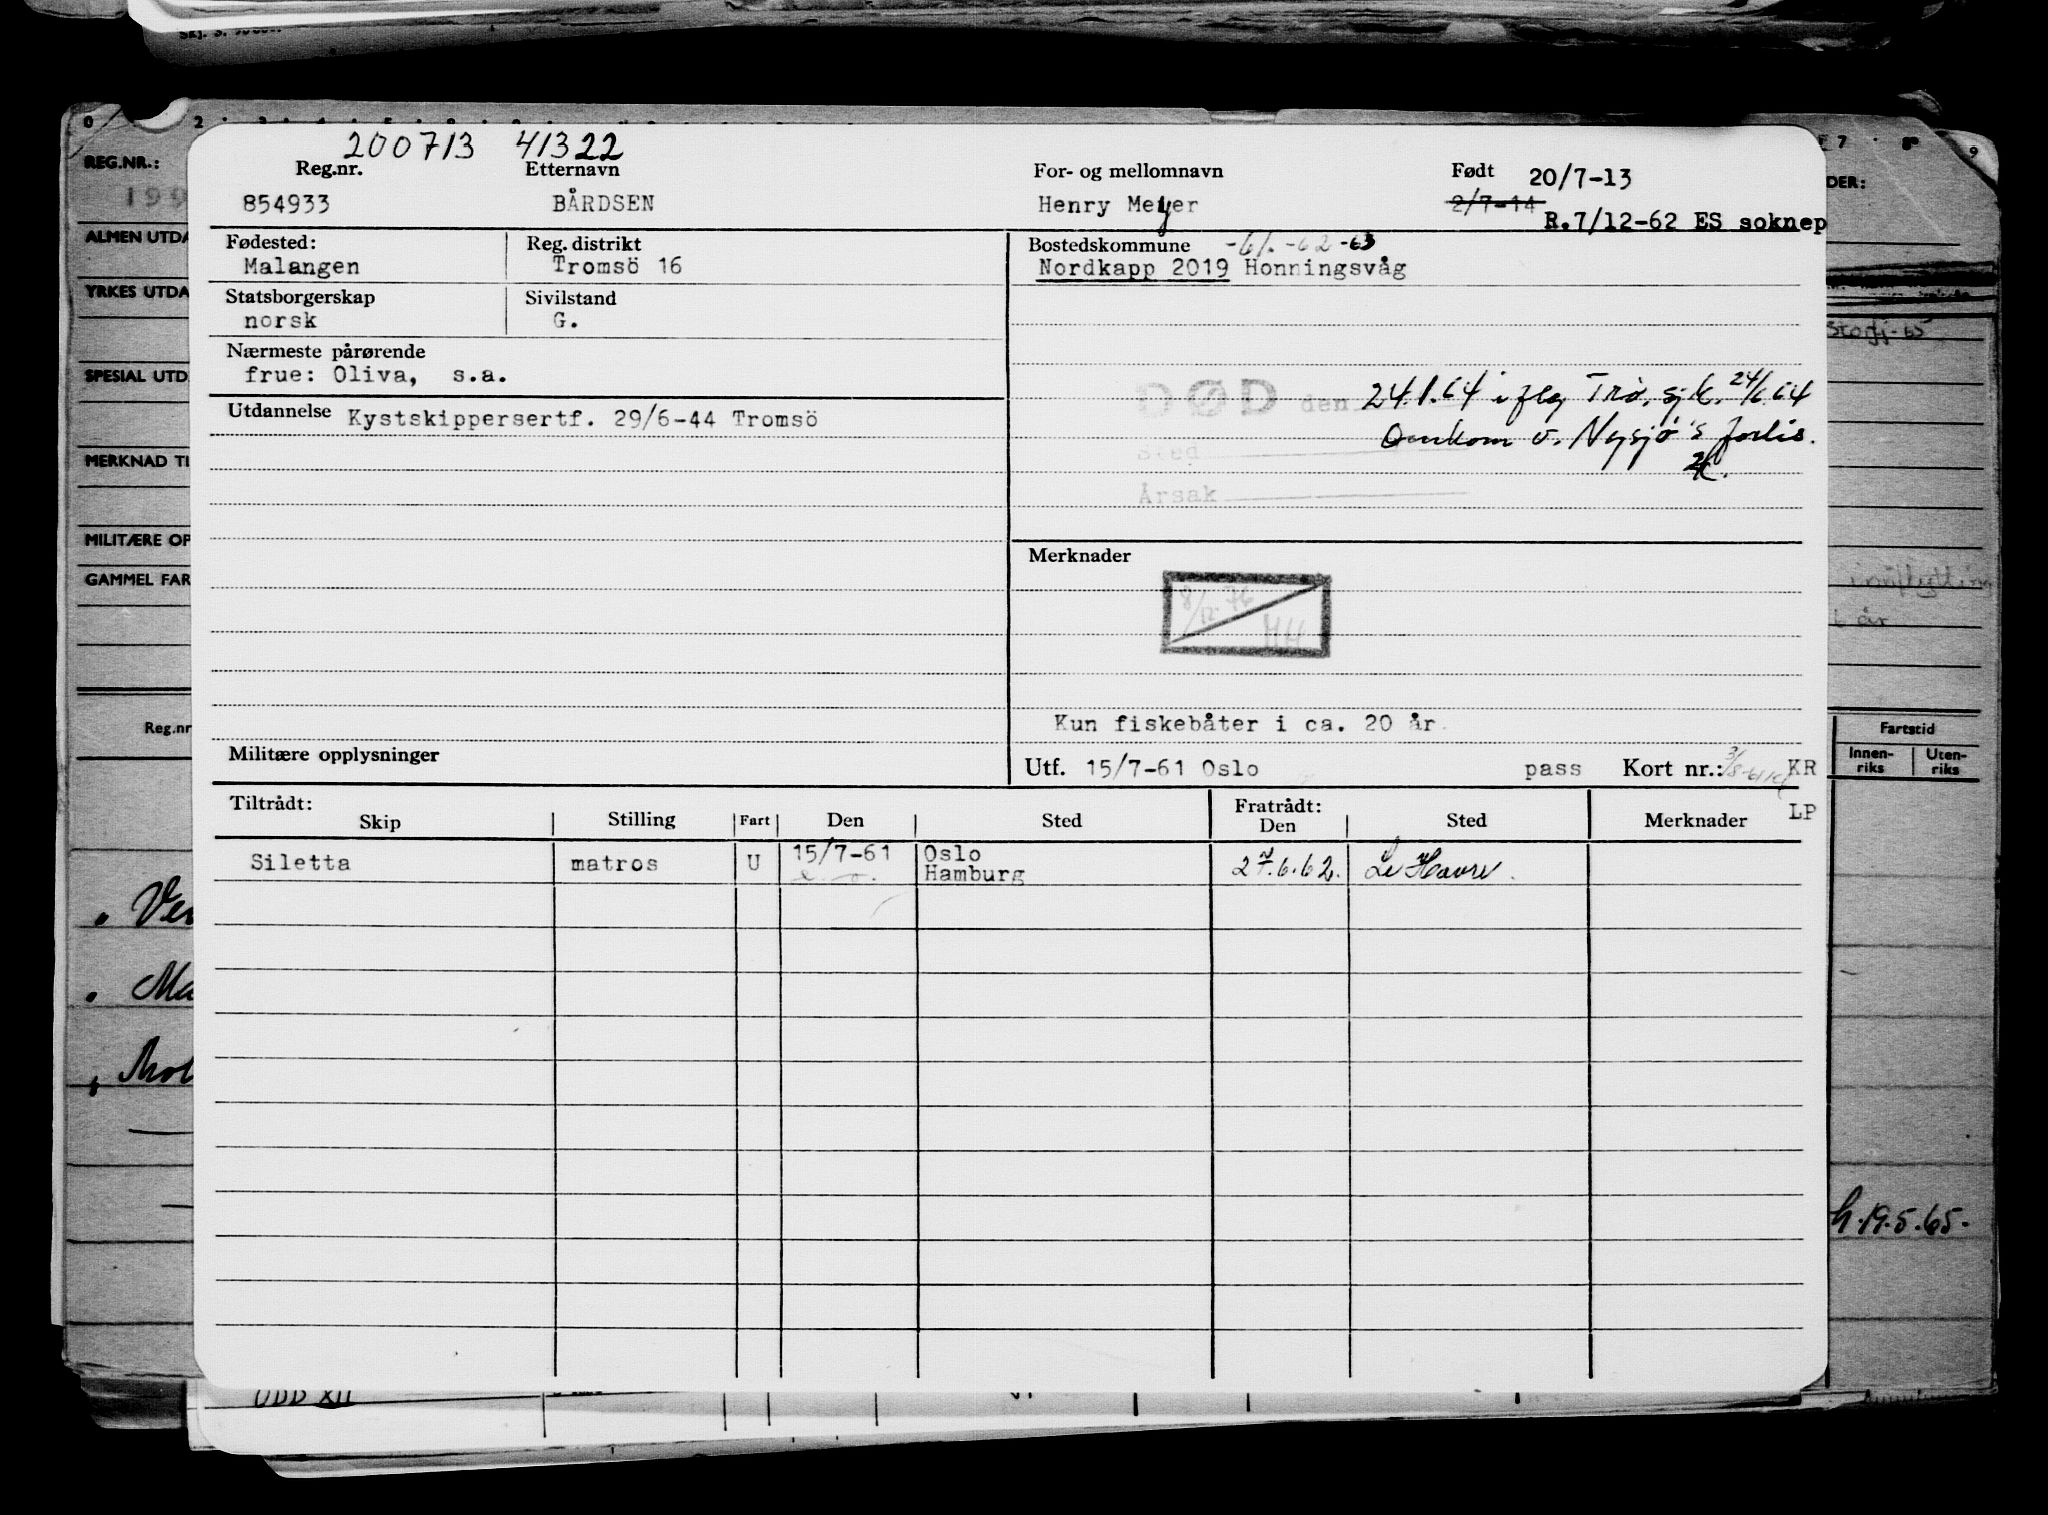 200713 41322
Reg.nr. Etternavn For- og mellomnavn Født 20/7-13
854933 BÅRDSEN Henry Meyer 2/7-14
R.7/12-62 ES soknep
Fødested: Reg. distrikt Bostedskommune -61.-62-63
Malangen Tromsö 16 Nordkapp 2019 Honningsvåg
Statsborgerskap Sivilstand
norsk G.
Nærmeste pårørende
frue: Oliva, s.a.
DØD den 24.1.64 iflg Trø. sj.k. 24/6.64
Utdannelse Kystskippersertf. 29/6-44 Tromsö
Omkom v. Nysjø's forlis.
Sted
Årsak
Merknader
8/12-76
HH
Kun fiskebåter i ca. 20 år.
Militære opplysninger
Utf. 15/7-61 Oslo pass Kort nr.: KR
LP
Tiltrådt: Fratrådt:
Skip Stilling Fart Den Sted Den Sted Merknader
Siletta matros U 15/7-61 Oslo
Hamburg 27.6.62. Le Havre.
REG.NR.:
ALMEN UTDA
YRKES UTDA
SPESIAL UTD
MERKNAD TI
MILITÆRE OP
GAMMEL FAR
Reg.nr
Ves
Ma
DER:
6 år
Fartstid
Innen-
riks
Uten-
riks
h.19.5.65.
ODD XII